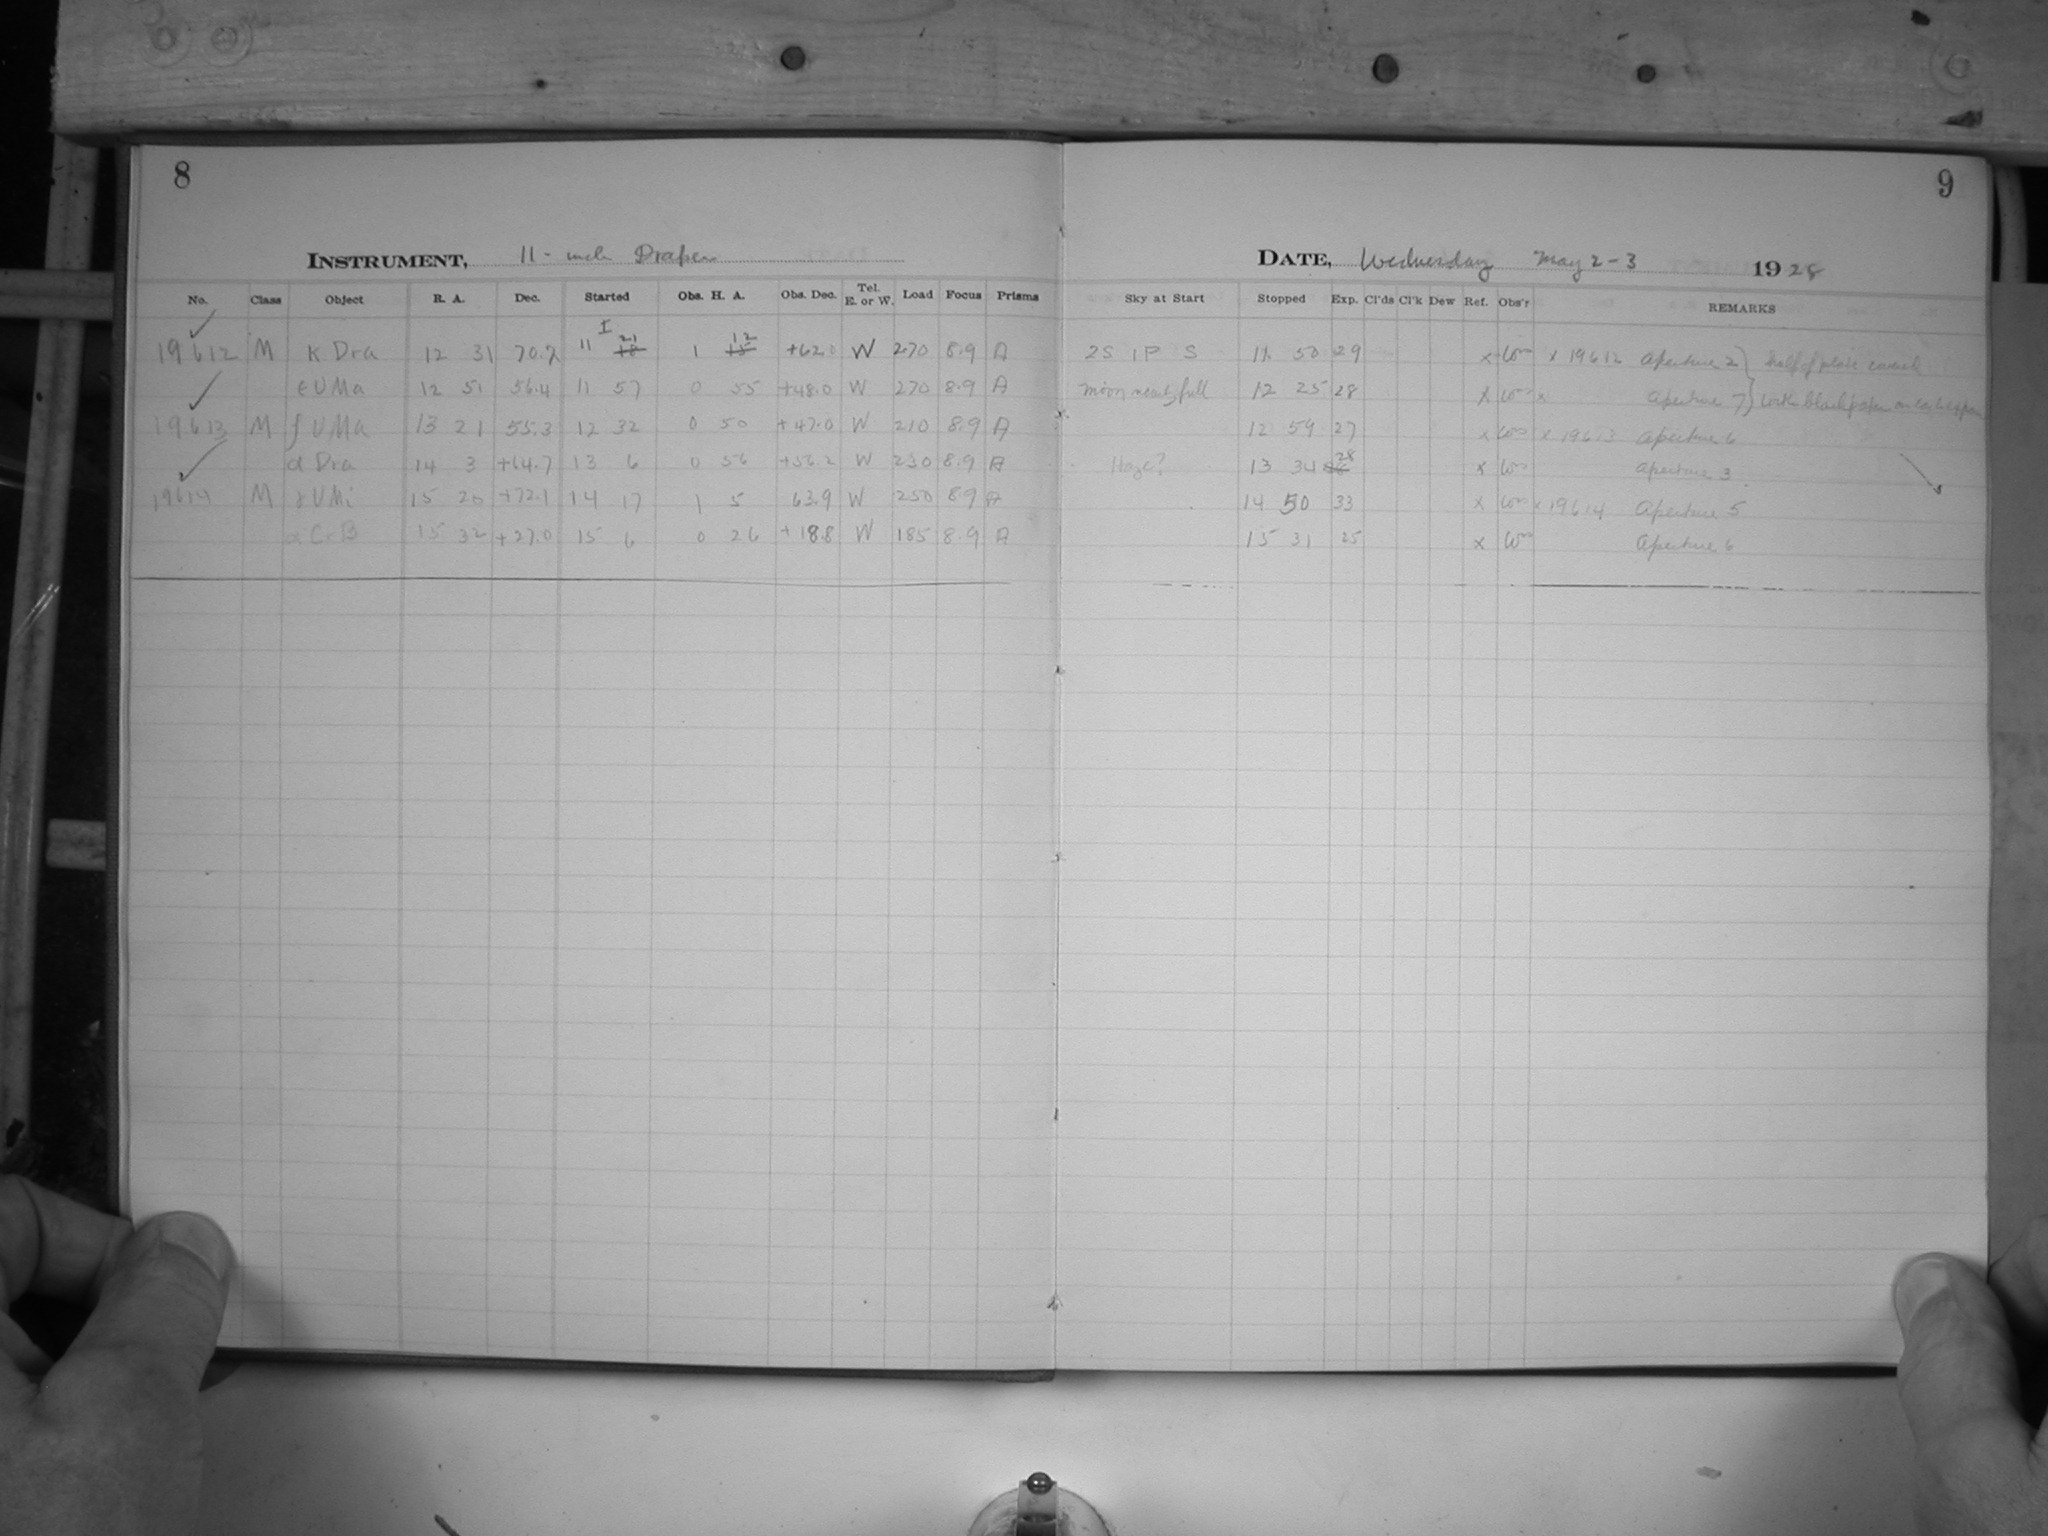 8
INSTRUMENT, 11-inch Draper
No. Class Object R. A. Dec. Started Obs. H. A. Obs. Dec. Tel. E. or W. Load Focus Prisms
19612 M κ Dra 12 31 70.2 11 21 1 12 +62.0 W 270 8.9 A
ε UMa 12 51 56.4 11 57 0 55 +48.0 W 270 8.9 A
19613 M ζ UMa 13 21 55.3 12 32 0 50 +47.0 W 210 8.9 A
α Dra 14 3 +64.7 13 6 0 56 +56.2 W 230 8.9 A
19614 M γ UMi 15 20 +72.1 14 17 1 5 63.9 W 250 8.9 A
α CrB 15 32 +27.0 15 6 0 26 +18.8 W 185 8.9 A
9
DATE, Wednesday May 2-3 1928
Sky at Start Stopped Exp. Cl'ds Cl'k Dew Ref. Obs'r REMARKS
2S 1P S 11 50 29 x x 19612 Aperture 2 } half of plate covered
Moon nearly full 12 25 28 x x Aperture 7 } with black paper on each
12 59 27 x x 19613 Aperture 6
Haze? 13 34 28 x Aperture 3
14 50 33 x x 19614 Aperture 5
15 31 25 x Aperture 6